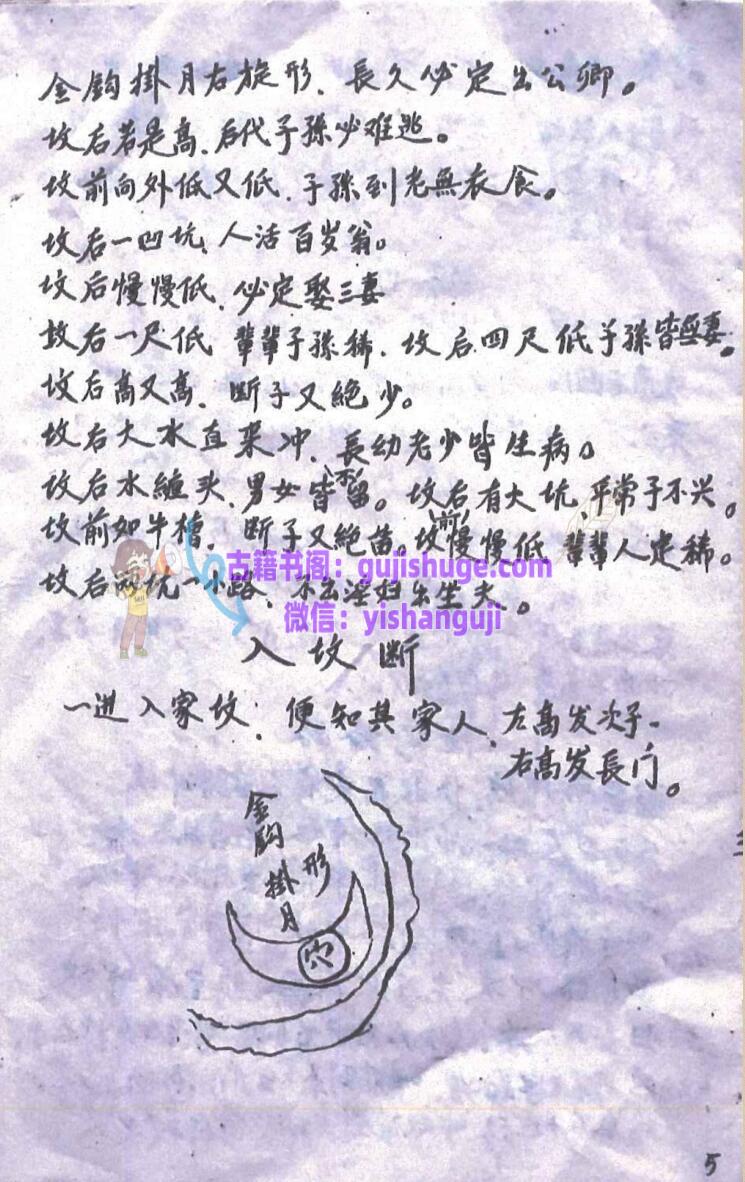 金鈎掛月右旋形、長久必定出公卿。
坟后若是高、后代子孫必难逃。
坟前向外低又低、子孫到老無衣食。
坟后一凹坑、人活百岁翁。
坟后慢慢低、必定娶三妻
坟后一尺低 輩輩子孫稀、坟后四尺低子孫皆無妻。
坟后高又高、断子又絶少。
坟后大水直来冲、長幼老少皆生病。
坟后水纏头、男女皆不留。坟后有大坑 平常子不兴。
坟前如牛槽、断子又絶苗。坟前慢慢低 輩輩人定稀。
坟后两坑一小路、不出淫妇出生夫。
古籍书阁：gujishuge.com
微信：yishanguji
入坟断
一进入家坟、便知其家人、左高发次子、
右高发長门。
金鈎掛月形
穴
5